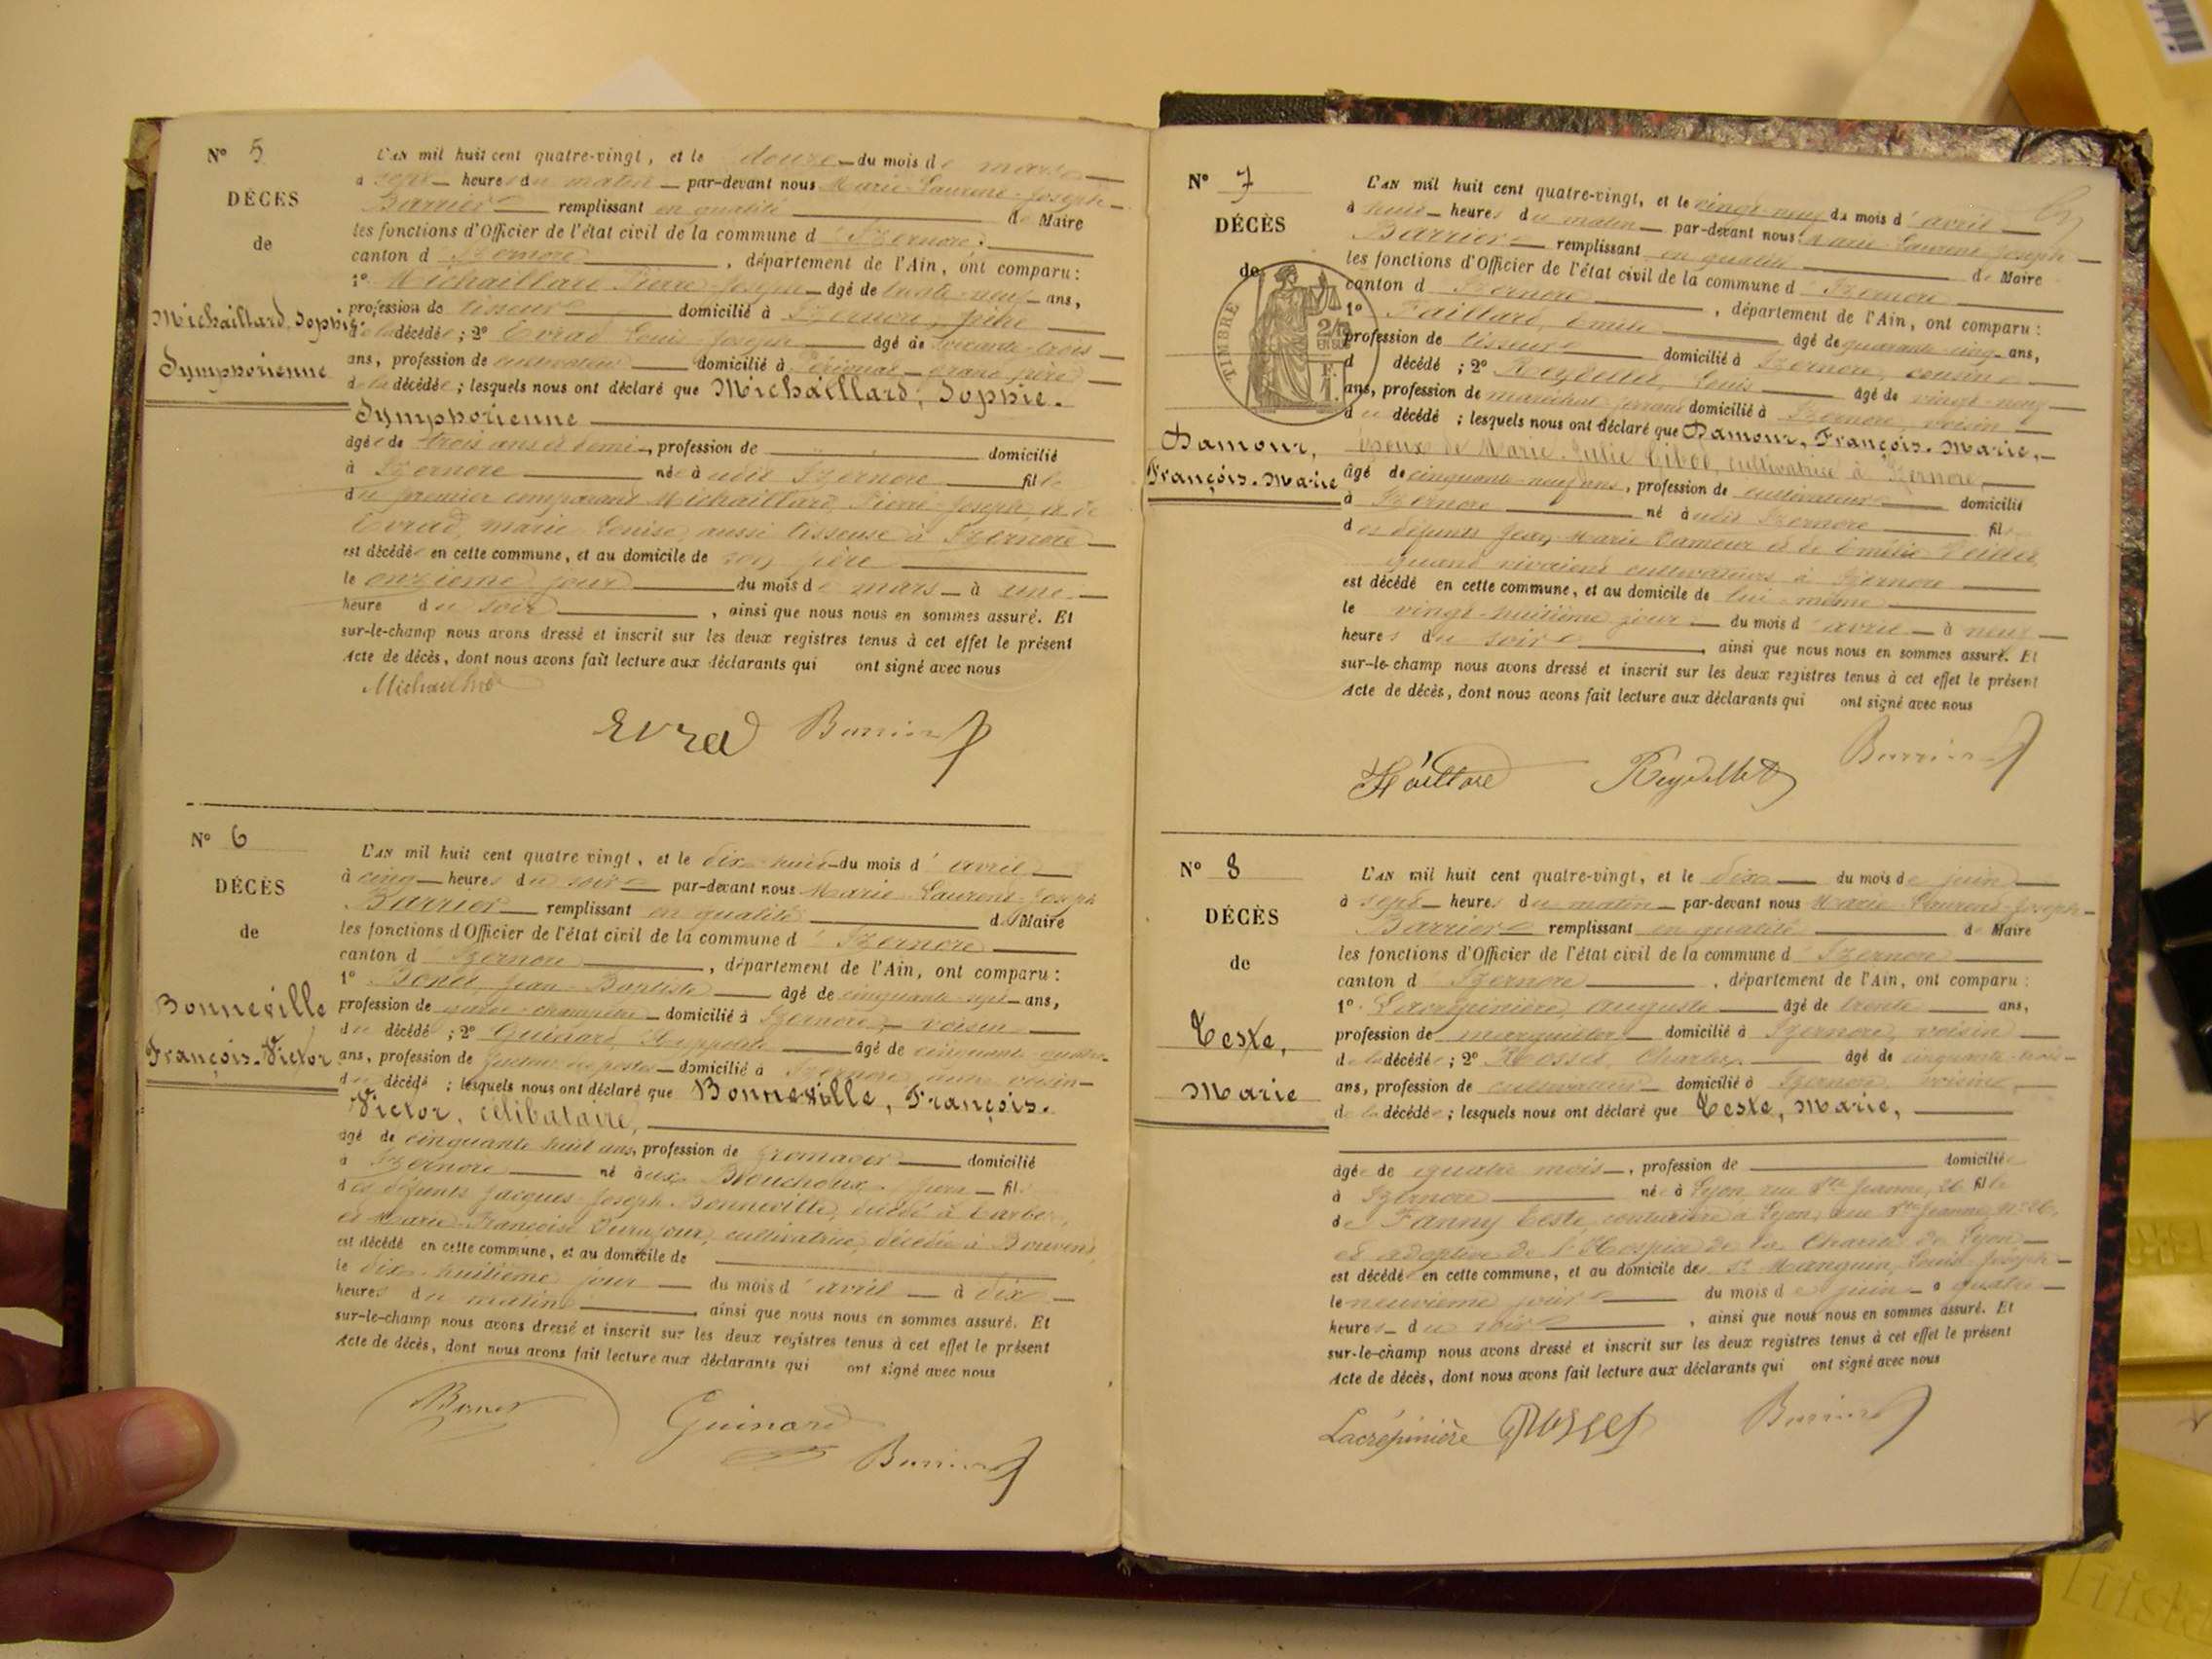 N° 5
DÉCÈS
de
Michaillard, Sophie
Symphorienne
L'AN mil huit cent quatre-vingt, et le douze du mois de mars
à sept heures du matin par-devant nous Marie-Laurent-Joseph
Barrier remplissant en qualité de Maire
les fonctions d'Officier de l'état civil de la commune d'Izernore
canton d'Izernore, département de l'Ain, ont comparu :
1° Michaillard Pierre-Joseph âgé de trente-neuf ans,
profession de tisseur domicilié à Izernore, père
de la décédée ; 2° Evrad Louis-Joseph âgé de soixante-trois
ans, profession de cultivateur domicilié à grand père
de la décédée ; lesquels nous ont déclaré que Michaillard, Sophie-
Symphorienne
âgée de trois ans et demi, profession de domicilié
à Izernore née à udit Izernore fille
du premier comparant Michaillard, Pierre-Joseph et de
Evrad, Marie Louise, aussi tisseuse à Izernore
est décédée en cette commune, et au domicile de son père
le onzième jour du mois de mars à une
heure du soir, ainsi que nous nous en sommes assuré. Et
sur-le-champ nous avons dressé et inscrit sur les deux registres tenus à cet effet le présent
Acte de décès, dont nous avons fait lecture aux déclarants qui ont signé avec nous
Michaillard
Evrad Barrier
N° 6
DÉCÈS
de
Bonneville
François-Victor
L'AN mil huit cent quatre vingt, et le dix-huit du mois d'avril
à cinq heures du soir par-devant nous Marie-Laurent-Joseph
Barrier remplissant en qualité de Maire
les fonctions d'Officier de l'état civil de la commune d'Izernore
canton d'Izernore, département de l'Ain, ont comparu :
1° Bonet, Jean-Baptiste âgé de cinquante-sept ans,
profession de garde-champêtre domicilié à Izernore, voisin
du décédé ; 2° Guinard, Hippolyte âgé de cinquante-quatre
ans, profession de domicilié à Izernore, aussi voisin
du décédé ; lesquels nous ont déclaré que Bonneville, François-
Victor, célibataire,
âgé de cinquante huit ans, profession de fromager domicilié
à Izernore né aux Bouchoux, Jura fils
des défunts Jacques-Joseph Bonneville, décédé à
et Marie-Françoise cultivatrice, décédée à Bouvent,
est décédé en cette commune, et au domicile de
le dix-huitième jour du mois d'avril à dix
heures du matin, ainsi que nous nous en sommes assuré. Et
sur-le-champ nous avons dressé et inscrit sur les deux registres tenus à cet effet le présent
Acte de décès, dont nous avons fait lecture aux déclarants qui ont signé avec nous
Bonet
Guinard
Barrier
N° 7
DÉCÈS
de
TIMBRE
Damour,
François-Marie
L'AN mil huit cent quatre-vingt, et le vingt-neuf du mois d'avril
à huit heures du matin par-devant nous Marie-Laurent-Joseph
Barrier remplissant en qualité de Maire
les fonctions d'Officier de l'état civil de la commune d'Izernore
canton d'Izernore, département de l'Ain, ont comparu :
1° Faillard, Emile âgé de quarante-cinq ans,
profession de tisseur domicilié à Izernore, cousin
d décédé ; 2° Reydellet, Louis âgé de vingt-neuf
ans, profession de maréchal-ferrant domicilié à Izernore, voisin
du décédé ; lesquels nous ont déclaré que Damour, François-Marie,
époux de Marie-Julie cultivatrice à Izernore,
âgé de cinquante-neuf ans, profession de cultivateur domicilié
à Izernore né à udit Izernore fils
des défunts Jean-Marie Damour et de Emélie
quand vivaient cultivateurs à Izernore
est décédé en cette commune, et au domicile de lui-même
le vingt-huitième jour du mois d'avril à neuf
heures du soir, ainsi que nous nous en sommes assuré. Et
sur-le-champ nous avons dressé et inscrit sur les deux registres tenus à cet effet le présent
Acte de décès, dont nous avons fait lecture aux déclarants qui ont signé avec nous
Reydellet Barrier
N° 8
DÉCÈS
de
Teste,
Marie
L'AN mil huit cent quatre-vingt, et le dix du mois de juin
à sept heures du matin par-devant nous Marie-Laurent-Joseph
Barrier remplissant en qualité de Maire
les fonctions d'Officier de l'état civil de la commune d'Izernore
canton d'Izernore, département de l'Ain, ont comparu :
1° Lacrépinière, Auguste âgé de trente ans,
profession de marguiller domicilié à Izernore, voisin
de la décédée ; 2° Rosset, Charles âgé de cinquante-trois
ans, profession de cultivateur domicilié à Izernore, voisin
de la décédée ; lesquels nous ont déclaré que Teste, Marie,
âgée de quatre mois, profession de domiciliée
à Izernore née à Lyon, rue Ste Jeanne, 26 fille
de Fanny Teste, couturière à Lyon, rue Ste Jeanne, n° 26,
et adoptive de l'Hospice de la Charité de Lyon
est décédée en cette commune, et au domicile de Sr Manguin, Louis-Joseph
le neuvième jour du mois de juin à quatre
heures du soir, ainsi que nous nous en sommes assuré. Et
sur-le-champ nous avons dressé et inscrit sur les deux registres tenus à cet effet le présent
Acte de décès, dont nous avons fait lecture aux déclarants qui ont signé avec nous
Lacrépinière Rosset Barrier